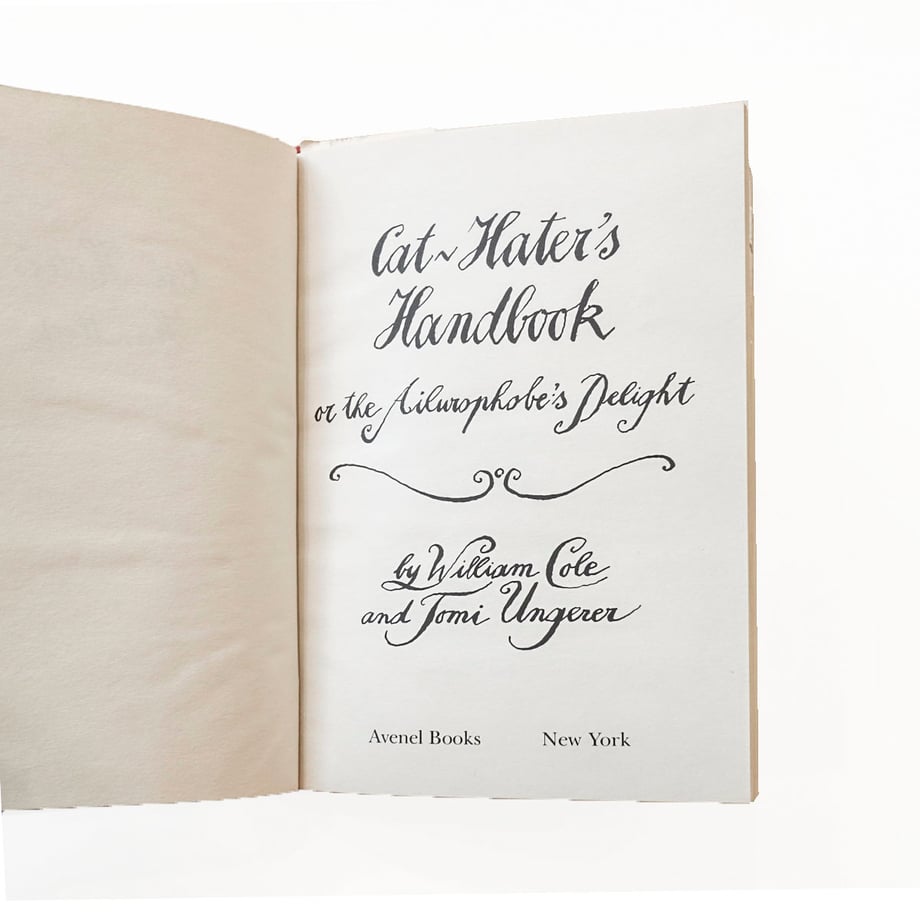 Cat~Hater's
Handbook
or the Ailurophobe's Delight
by William Cole
and Tomi Ungerer
Avenel Books New York